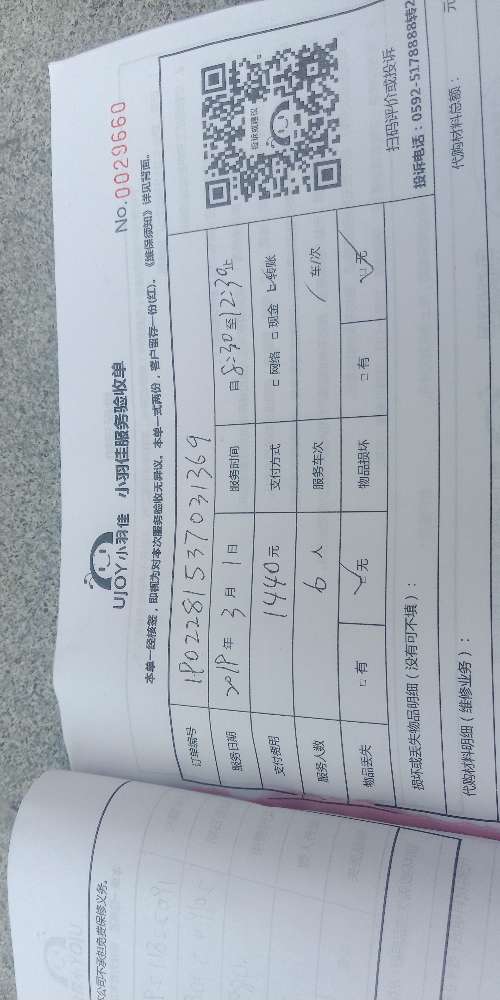 UJOY小羽佳 小羽佳服务验收单
No.0029660
本单一经核签，即视为对本次服务验收无异议。本单一式两份，客户留存一份(红)。《维保须知》详见背面。
订单编号 1802281537031369
服务日期 2018年 3月 1日 服务时间 自8:30至12:30止
支付费用 1440元 支付方式 □网络 □现金 □转账
服务人数 6人 服务车次 / 车/次
物品丢失 □有 □无 物品损坏 □有 □无
损坏或丢失物品明细（没有可不填）：
代购材料明细（维修业务）：
代购材料总额： 元
投诉或建议
扫码评价或投诉
投诉电话：0592-5178888转2
公司不承担免费保修义务。